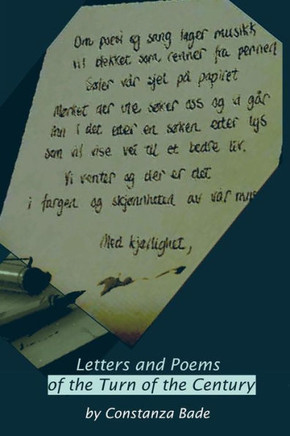 Om poesi og sang lager musikk
til blekket som renner fra pennen
Søler vår sjel på papiret
Mørket der ute søker oss og vi går
inn i det etter en søken etter lys
som vil vise vei til et bedre liv.
Vi venter og der er det
i fargen og skjønnheten av vår
Med kjærlighet,
Letters and Poems
of the Turn of the Century
by Constanza Bade